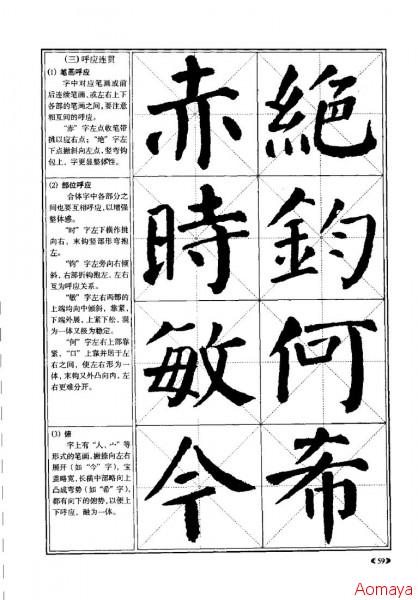 (三)呼应连贯
(1) 笔画呼应
字中对应笔画或前
后连续笔画,或左右上下
各部的笔画之间,要注意
相互间的呼应。
“赤”字左点收笔带
挑以应右点;“绝”字左
下点撇斜向左点,竖弯钩
包上,字更显整体性。
(2) 部位呼应
合体字中各部分之
间也要互相呼应,以增强
整体感。
“时”字左下横作挑
向右,末钩竖部形弯抱
左。
“钧”字左旁向右倾
斜,右部折钩抱左,左右
互为呼应关系。
“敏”字左右两部的
上端均向中倾斜,靠紧,
下端外展,上紧下松,混
为一体又极为稳定。
“何”字左右上部靠
紧,“口”上靠并居于左
右之间,使左右形为一
体,末钩又外凸向内,左
右更难分开。
(3) 俯
字上有“人、宀”等
形式的笔画,撇捺向左右
展开(如“今”字),宝
盖略宽,长横中部略向上
凸成弯势(如“希”字),
都有向下的俯势,以便上
下呼应,融为一体。
赤 絕
時 鈞
敏 何
今 希
《59》
Aomaya